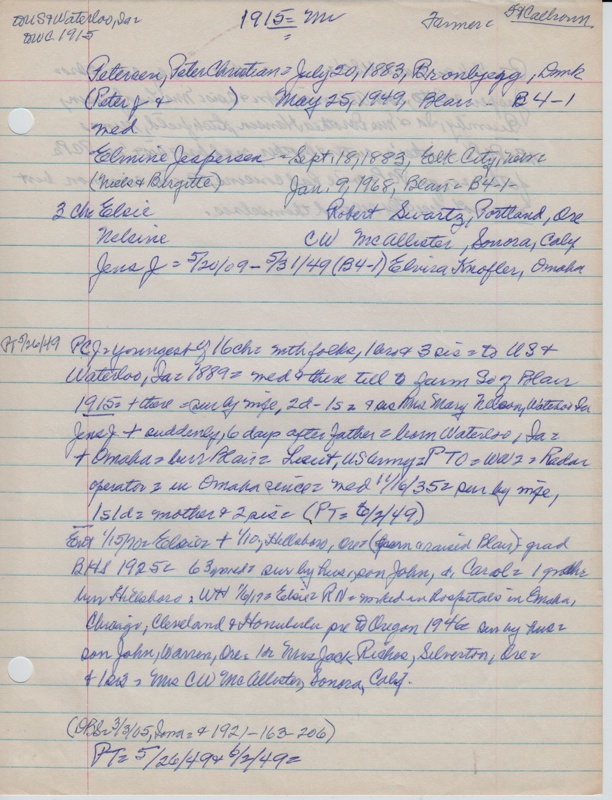 to US & Waterloo, Ia=
to WC 1915
1915= Mr
Farmer= Ft Calhoun
Petersen, Peter Christian= July 20, 1883, Bronbyegg, Dmk
(Peter J & ) May 25, 1949, Blair B4-1
med
Elmine Jespersen - Sept. 18, 1883, Elk City, Neb=
(Niels & Birgitte) Jan. 9, 1968, Blair= B4-1-
3 Ch= Elsie Robert Swartz, Portland, Ore
Nelsine CW McAllister, Sonora, Calif
Jens J = 5/20/09 - 5/31/49 (B4-1) Elvira Knofler, Omaha
PT 5/26/49 PCJ= youngest of 16 ch= folks, 1 bro & 3 sis= to US &
Waterloo, Ia= 1889= med & there till to farm So of Blair
1915= + there= sur by wife, 2d - 1s= & sis Mrs Mary Nelson, Waterloo Ia
Jens J + suddenly, 6 days after father= born Waterloo, Ia=
+ Omaha= bur Blair= Lieut, US Army= PTO= WW2= Radar
operator= in Omaha since= med 11/16/35= sur by wife,
1s 1d= mother & 2 sis= (PT= 6/2/49)
Ent 1/15/70= Elsie= + 1/10, Hillsboro, Ore= (born & raised Blair)= grad
BHS 1925= 63 yrs= sur by hus, son John, d, Carol= 1
Hillsboro= 1/6/17= Elsie= RN= worked in hospitals in Omaha,
Chicago, Cleveland & Honolulu pre to Oregon 1946= sur by hus=
son John, Warren, Ore= 1d= Mrs Jack Riches, Silverton, Ore=
& 1 sis= Mrs CW McAllister, Sonora, Calif.
(DBl= 3/3/05, & 1921-163-206)
PT= 5/26/49 & 6/2/49=